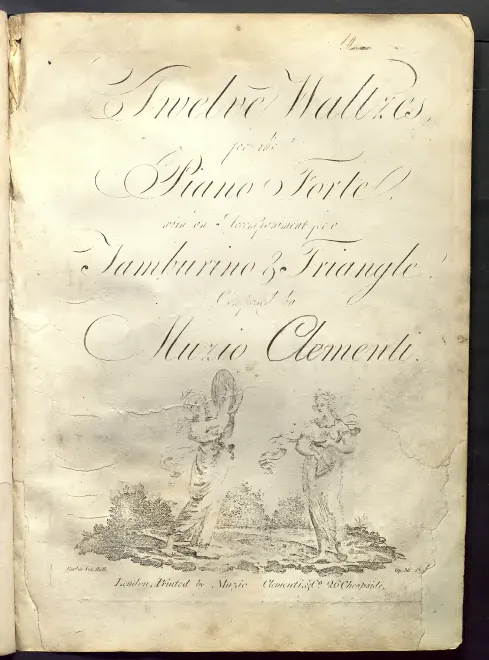 Twelve Waltzes,
for the
Piano Forte,
with an Accompaniment for a
Tamburino & Triangle.
Composed by
Muzio Clementi.
London, Printed by Muzio Clementi & Co. 26 Cheapside.